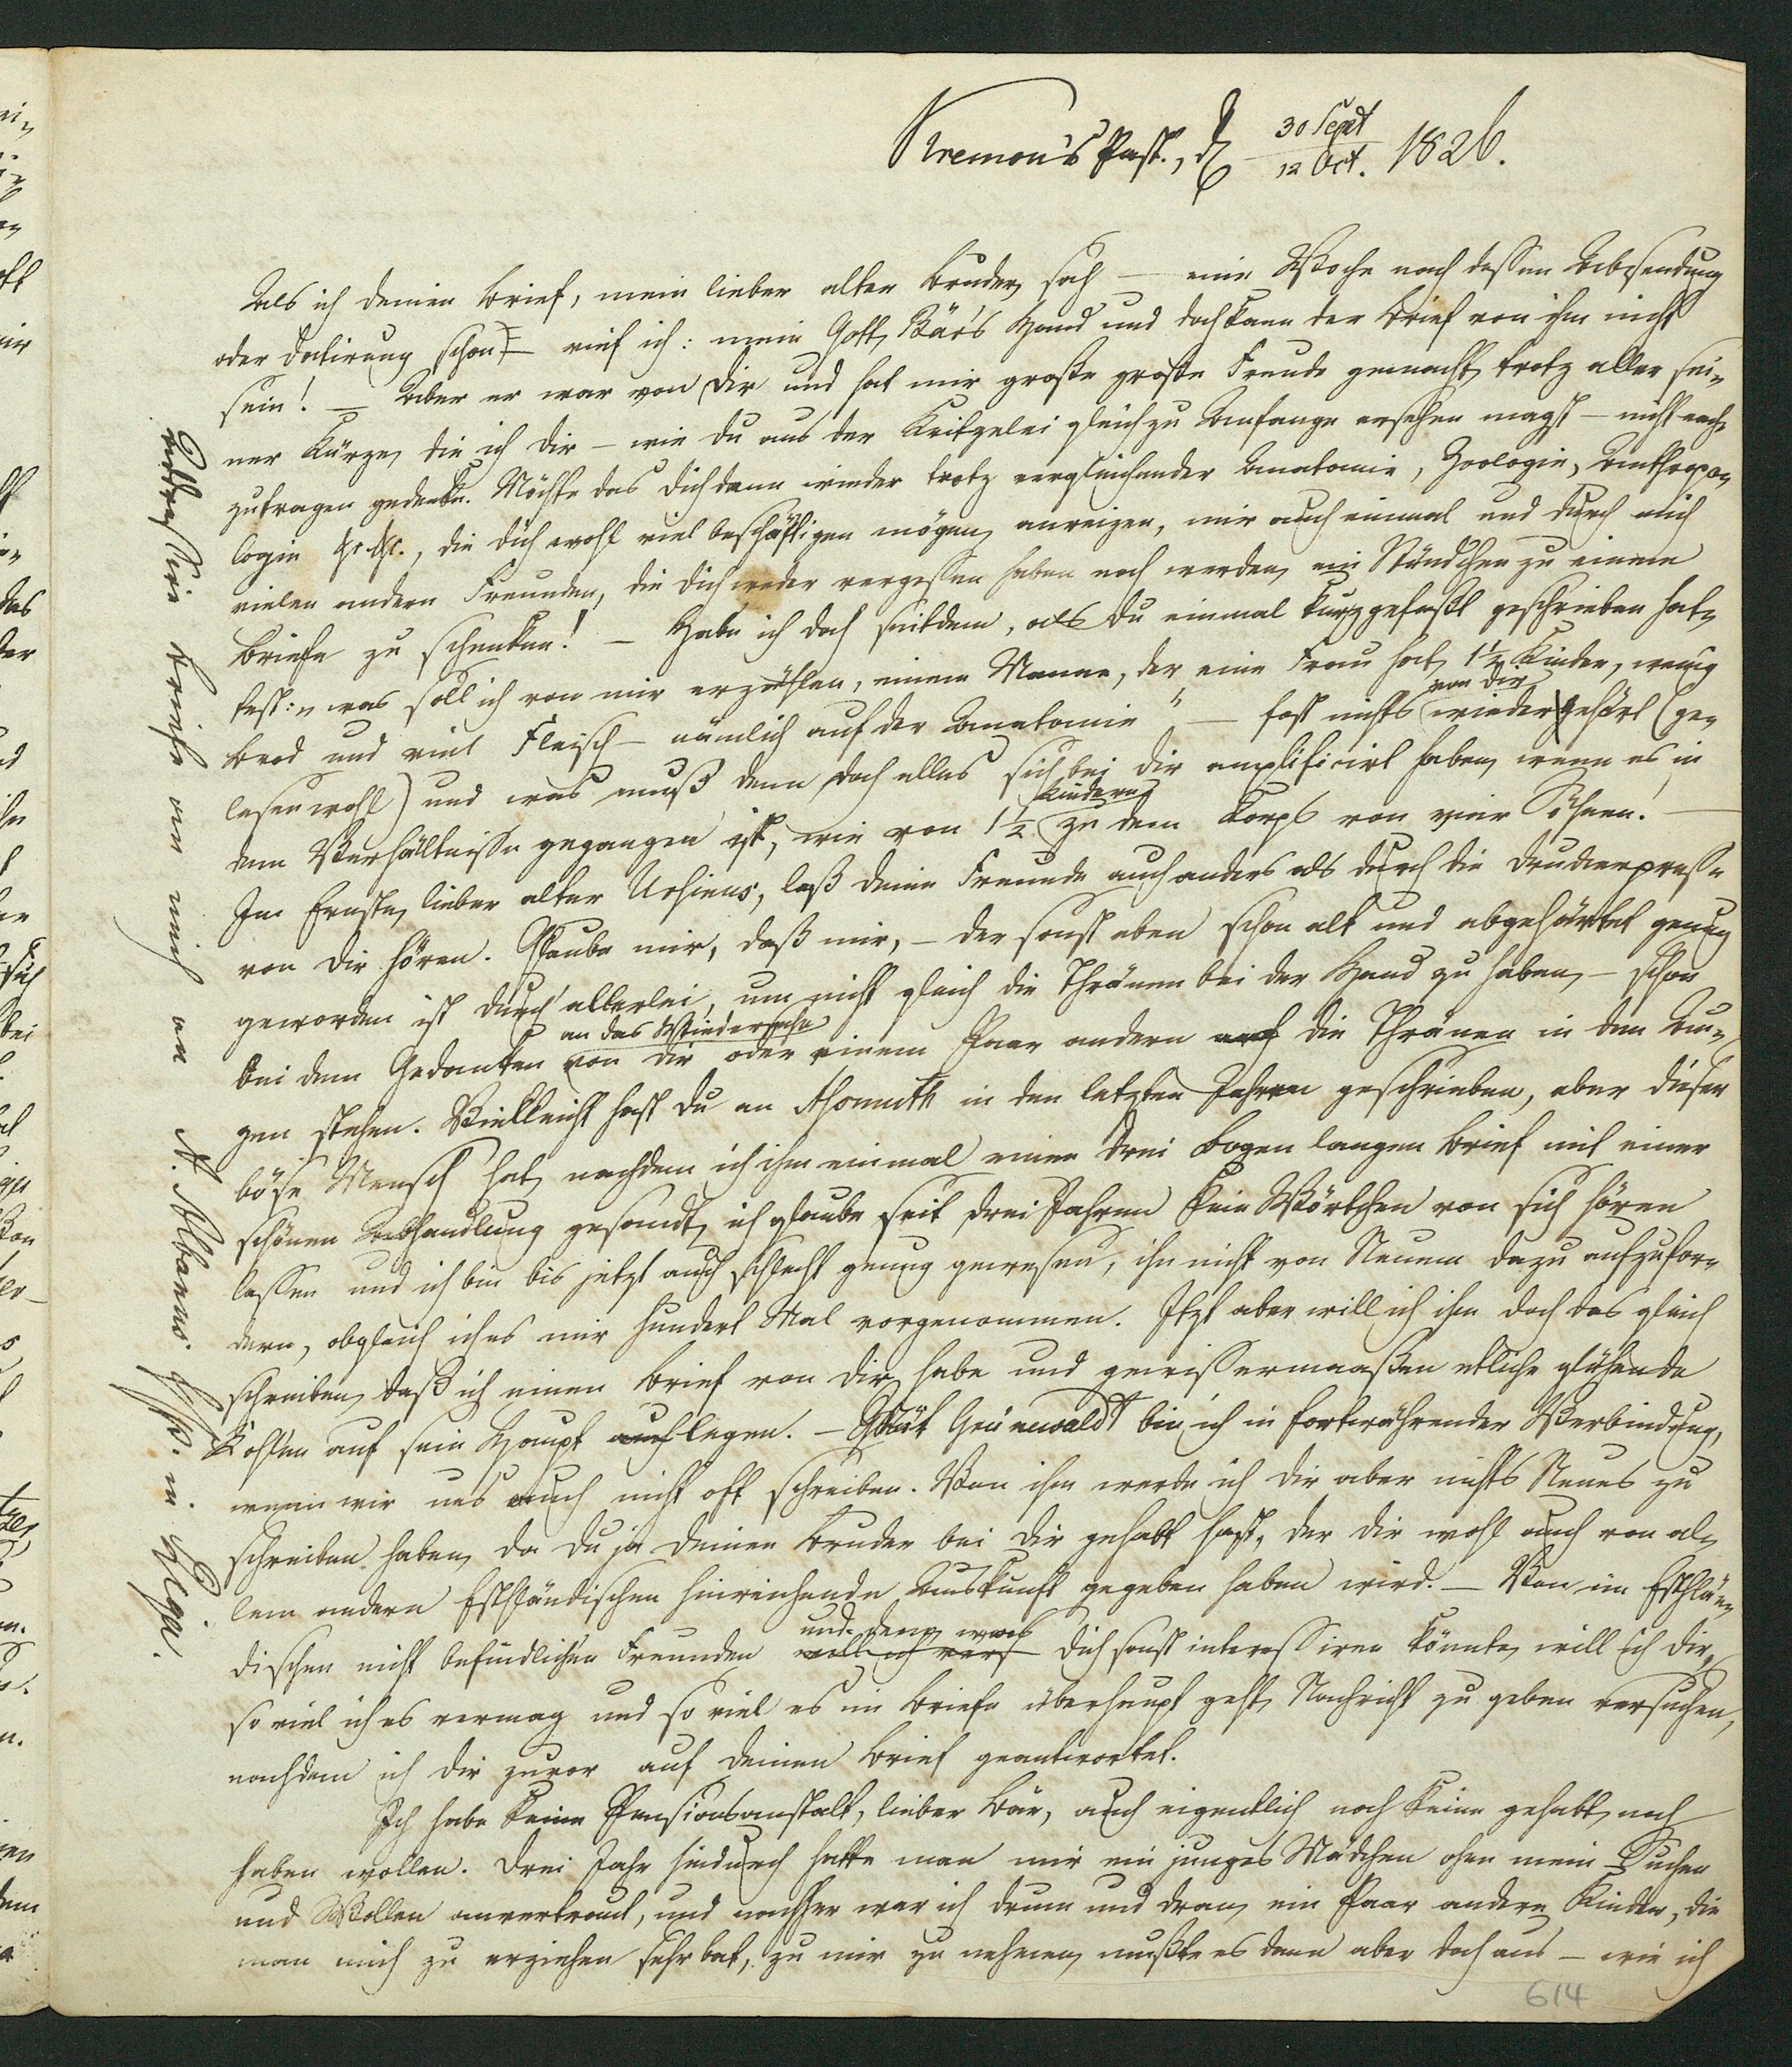 Kremon's Past., d. 30 Sept / 12 Oct. 1826.
Als ich deinen Brief, mein lieber alter Bruder, sah — eine Woche nach dessen Absendung
oder Datirung schon — rief ich: mein Gott, Bär's Hand und doch kann der Brief von ihm nicht
sein! — Aber er war von dir und hat mir große große Freude gemacht, trotz aller sei-
ner Kürze, die ich dir — wie du aus der Kritzelei gleich zu Anfange ersehen magst — nicht nach-
zutragen gedenke. Möchte das dich dann wieder trotz vergleichender Anatomie, Zoologie, Anthropo-
logie &c. &c., die dich wohl viel beschäftigen mögen, anreizen, mir auch einmal und durch mich
vielen andern Freunden, die dich weder vergessen haben noch werden, ein Stündchen zu einem
Briefe zu schenken! — Habe ich doch seitdem, als du einmal kurzgefaßt geschrieben hat-
test: „was soll ich von mir erzählen, einem Manne, der eine Frau hat, 1½ Kinder, wenig
Brod und viel Fleisch — nämlich auf der Anatomie" — fast nichts von dir wieder gehört (ge-
lesen wohl) und was muß denn doch alles sich bei dir amplificirt haben, wenn es in
dem Verhältnisse gegangen ist, wie von 1½ Kindern zu dem Korps von vier Söhnen! —
Im Ernste, lieber alter Ursinus, laß deine Freunde auch anders als durch die Druckerpresse
von dir hören. Glaube mir, daß mir, — der sonst eben schon alt und abgehärtet genug
geworden ist durch allerlei, um nicht gleich die Thränen bei der Hand zu haben, — schon
bei dem Gedanken an das Wiedersehn von dir oder einem Paar andern die Thränen in den Au-
gen stehen. Vielleicht hast du an Asmuth in den letzten Jahren geschrieben, aber dieser
böse Mensch hat, nachdem ich ihm einmal einen drei Bogen langen Brief mit einer
schönen Abhandlung gesandt, ich glaube seit drei Jahren kein Wörtchen von sich hören
lassen und ich bin bis jetzt auch schlecht genug gewesen, ihn nicht von Neuem dazu aufzufor-
dern, obgleich ich es mir hundert Mal vorgenommen. Jetzt aber will ich ihm doch das gleich
schreiben, daß ich einen Brief von dir habe und gewissermaaßen etliche glühende
Kohlen auf sein Haupt legen. — Mit Grünewaldt bin ich in fortwährender Verbindung,
wenn wir uns auch nicht oft schreiben. Von ihm werde ich dir aber nichts Neues zu
schreiben haben, da du ja deinen Bruder bei dir gehabt hast, der dir wohl auch von al-
lem andern Esthländischen hinreichende Auskunft gegeben haben wird. — Von im Esthlän-
dischen nicht befindlichen Freunden und dem, was dich sonst interessiren könnte, will ich dir,
so viel ich es vermag und so viel es im Briefe überhaupt geht, Nachricht zu geben versuchen,
nachdem ich dir zuvor auf deinen Brief geantwortet.
Ich habe keine Pensionsanstalt, lieber Bär, auch eigentlich noch keine gehabt, noch
haben wollen. Drei Jahr hindurch hatte man mir ein junges Mädchen ohne mein Suchen
und Wollen anvertraut, und nachher war ich drum und dran, ein Paar andere Kinder, die
man mich zu erziehen sehr bat, zu mir zu nehmen, mußte es dann aber doch aus — wie ich
614
Briefe an mich an A. Albanus in Riga.